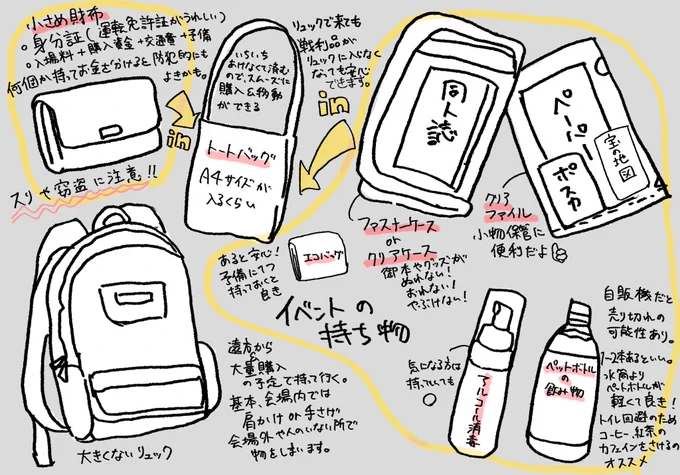 小さめ財布
・身分証(運転免許証がうれしい)
・入場料+購入資金+交通費+予備
何個か持ってお金を分けると防犯的にも
よきかも。
スリや窃盗に注意!!
in
いちいち
あけなくて済む
ので、スムーズに
購入&移動
ができる
トートバッグ
A4サイズが
入るくらい
リュックで来ても
戦利品が
リュックに入らなく
なっても安心
できます。
in
同人誌
ファスナーケース
or
クリアケース
御本やグッズが
ぬれない!
おれない!
やぶけない!
ペーパー
宝の地図
ポスカ
クリア
ファイル
小物保管に
便利だよ
あると安心!
予備に1つ
持っておくと
良き
エコバッグ
イベントの
持ち物
大きくないリュック
遠方から
大量購入
の予定で持って行く。
基本、会場内では
肩かけor手さげ
会場外や人のいない所で
物をしまいます。
気になる方は
持っていても
○
アルコール消毒
ペットボトル
の
飲み物
自販機だと
売り切れの
可能性あり。
1〜2本あるといい。
水筒より
ペットボトルが
軽くて良き!
トイレ回避のため
コーヒー、紅茶の
カフェインをさけるの
オススメ